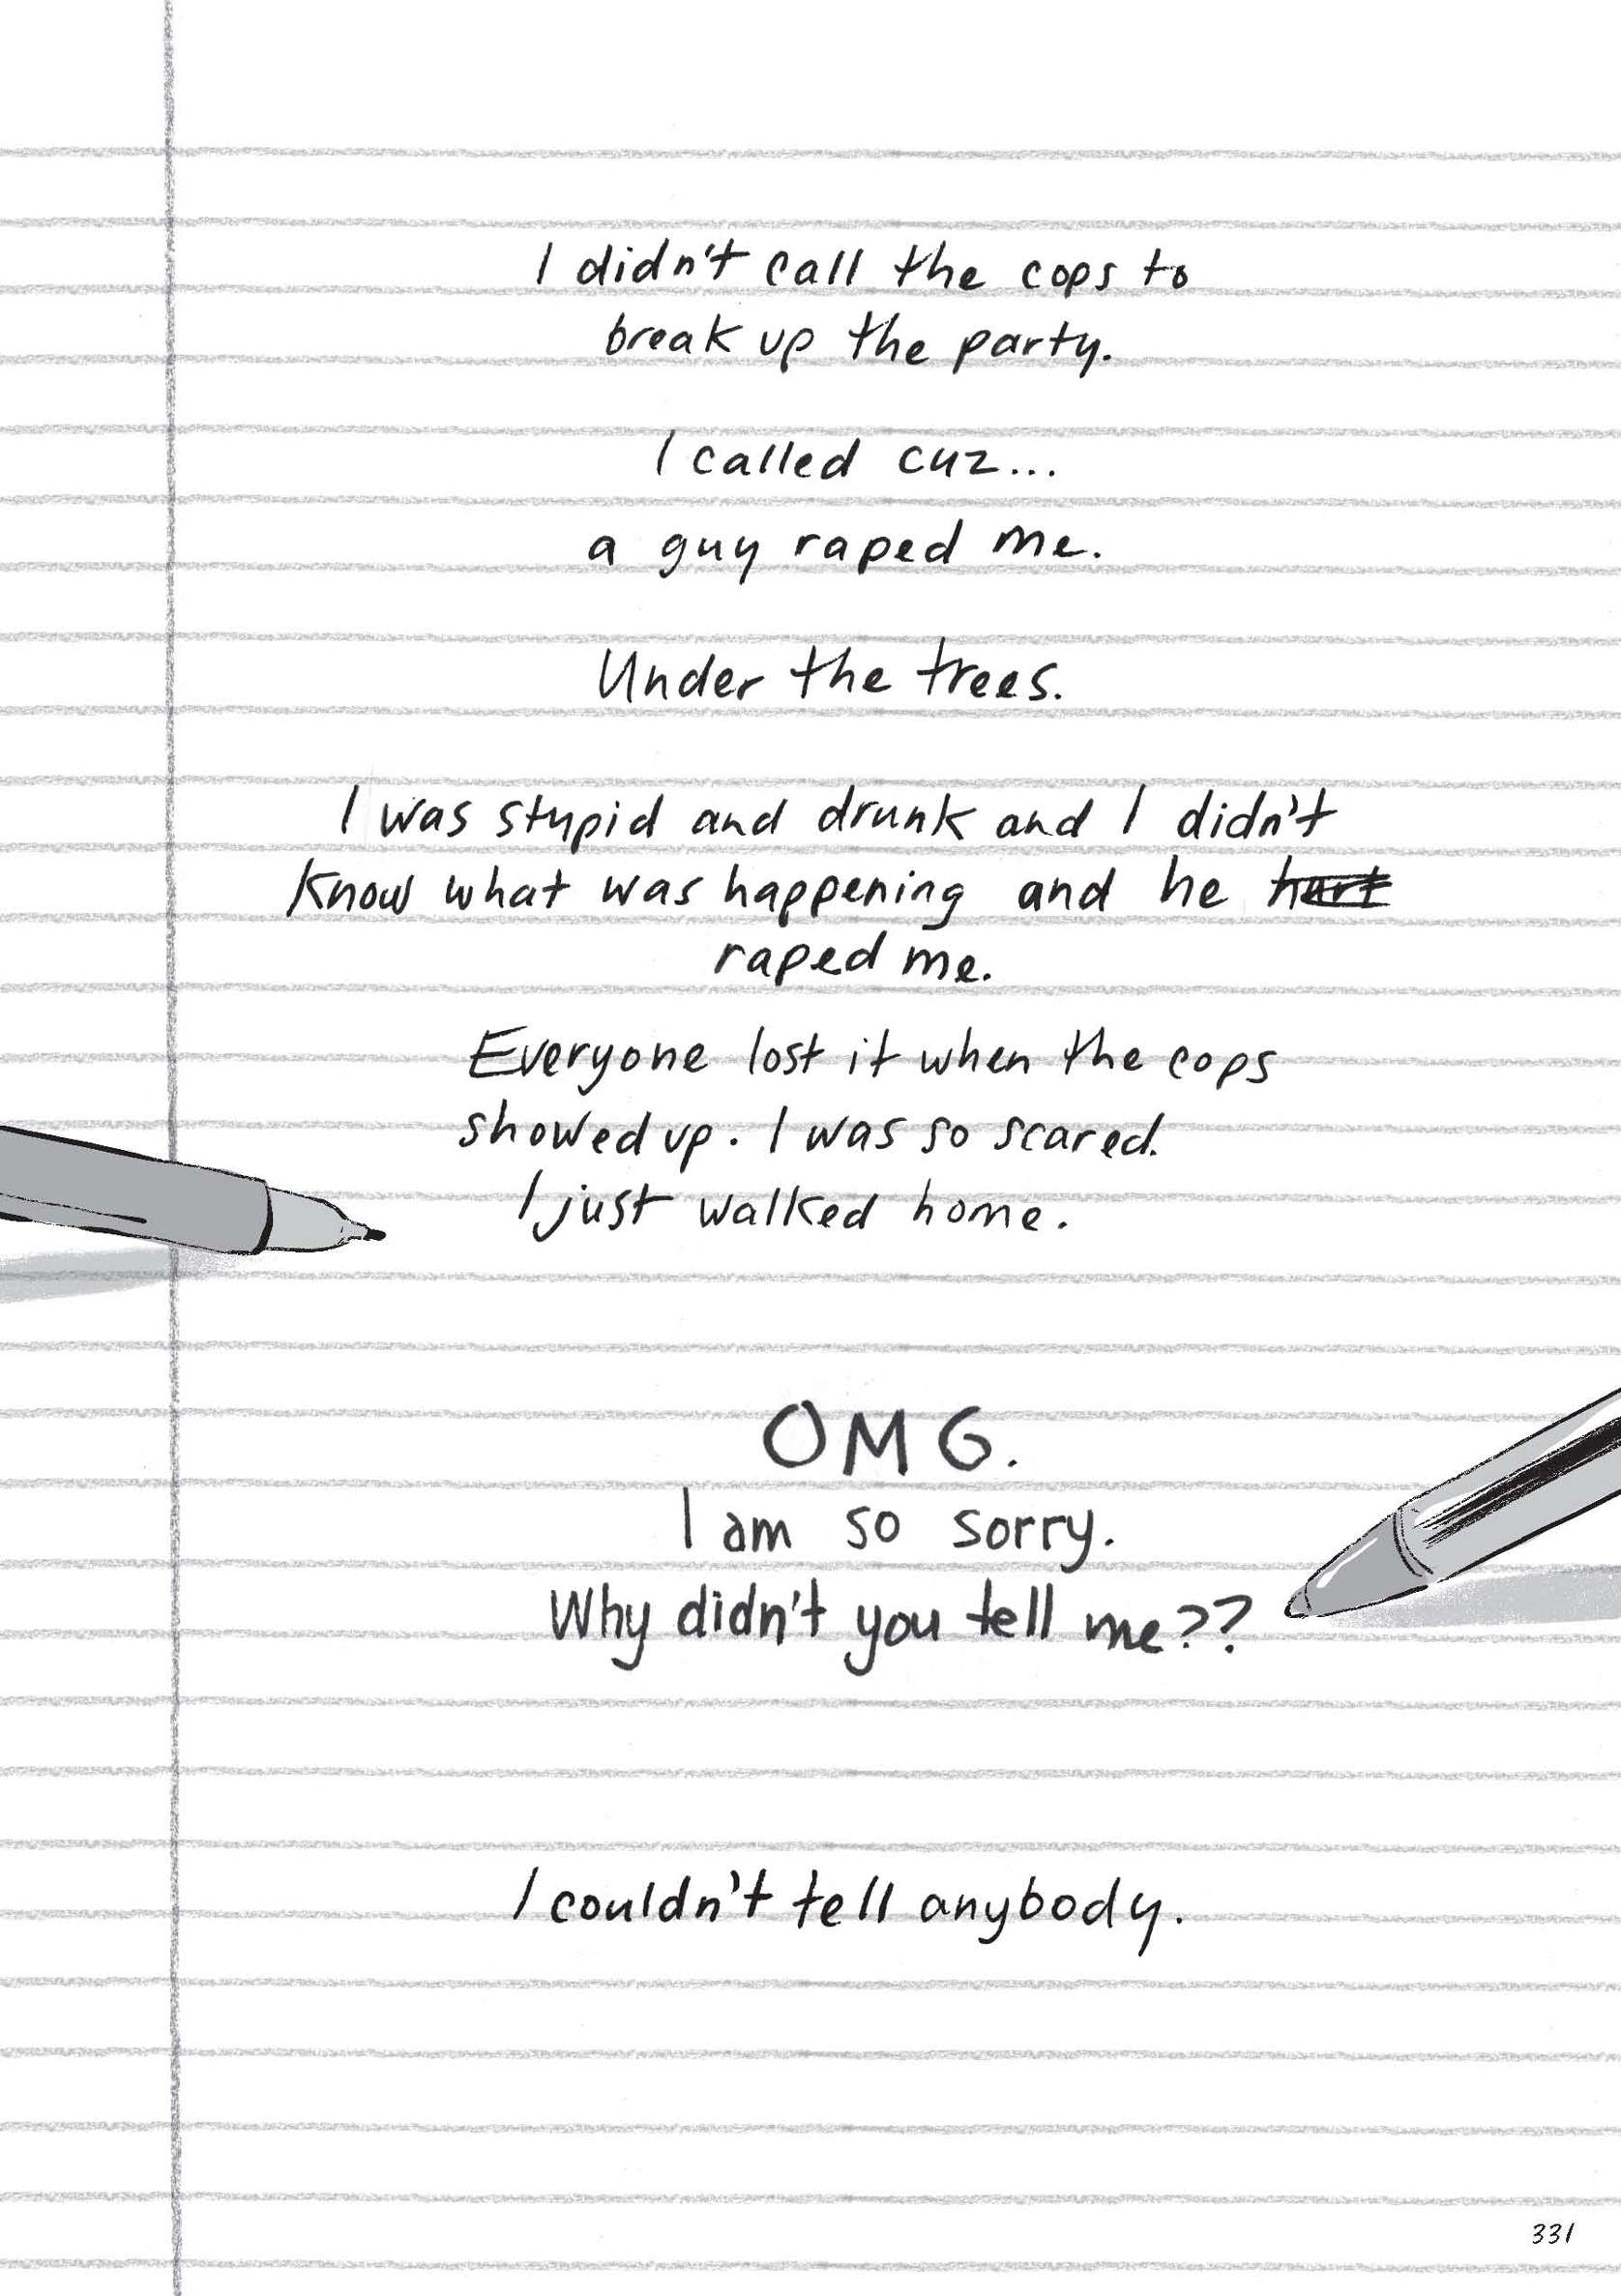 I didn't call the cops to
break up the party.
I called cuz...
a guy raped me.
Under the trees.
I was stupid and drunk and I didn't
know what was happening and he hurt
raped me.
Everyone lost it when the cops
showed up. I was so scared.
I just walked home.
OMG.
I am so sorry.
Why didn't you tell me??
I couldn't tell anybody.
331